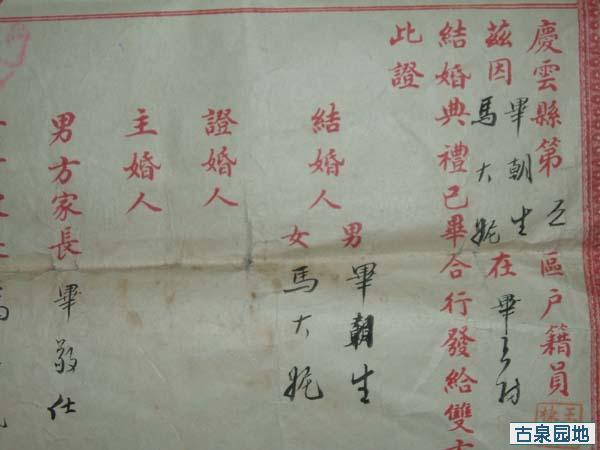 慶雲縣第五區户籍員
茲因畢朝生
馬大妮在畢村
結婚典禮已畢合行發給雙
此證
結婚人
男畢朝生
女馬大妮
證婚人
主婚人
男方家長畢敬仕
古泉园地